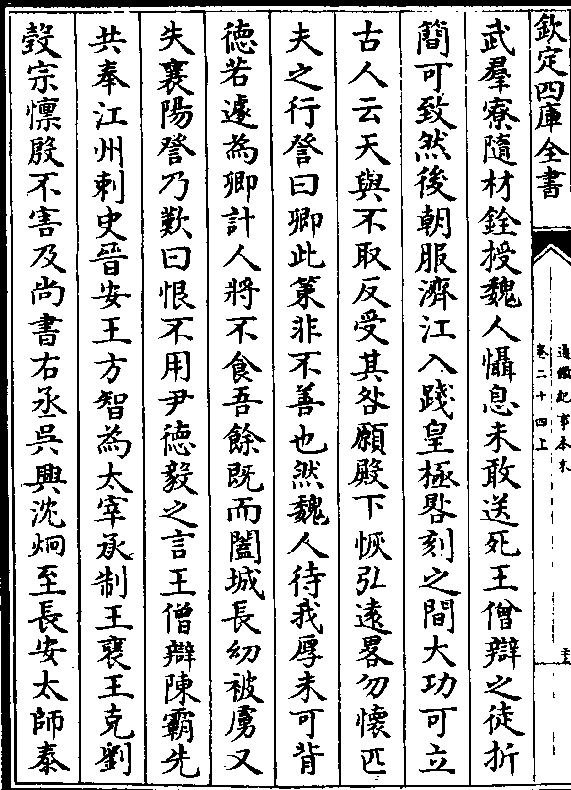 欽定四庫全書
通鑑紀事本末
卷二十四上
武羣寮隨材銓授魏人懾息未敢送死王僧辯之徒折
簡可致然後朝服濟江入踐皇極晷刻之間大功可立
古人云天與不取反受其咎願殿下恢弘遠畧勿懷匹
夫之行詧曰卿此策非不善也然魏人待我厚未可背
德若遽為卿計人將不食吾餘既而闔城長幼被虜又
失襄陽詧乃歎曰恨不用尹德毅之言王僧辯陳霸先
共奉江州刺史晉安王方智為太宰承制王襃王克劉
㲄宗懍殷不害及尚書右丞吳興沈炯至長安太師泰